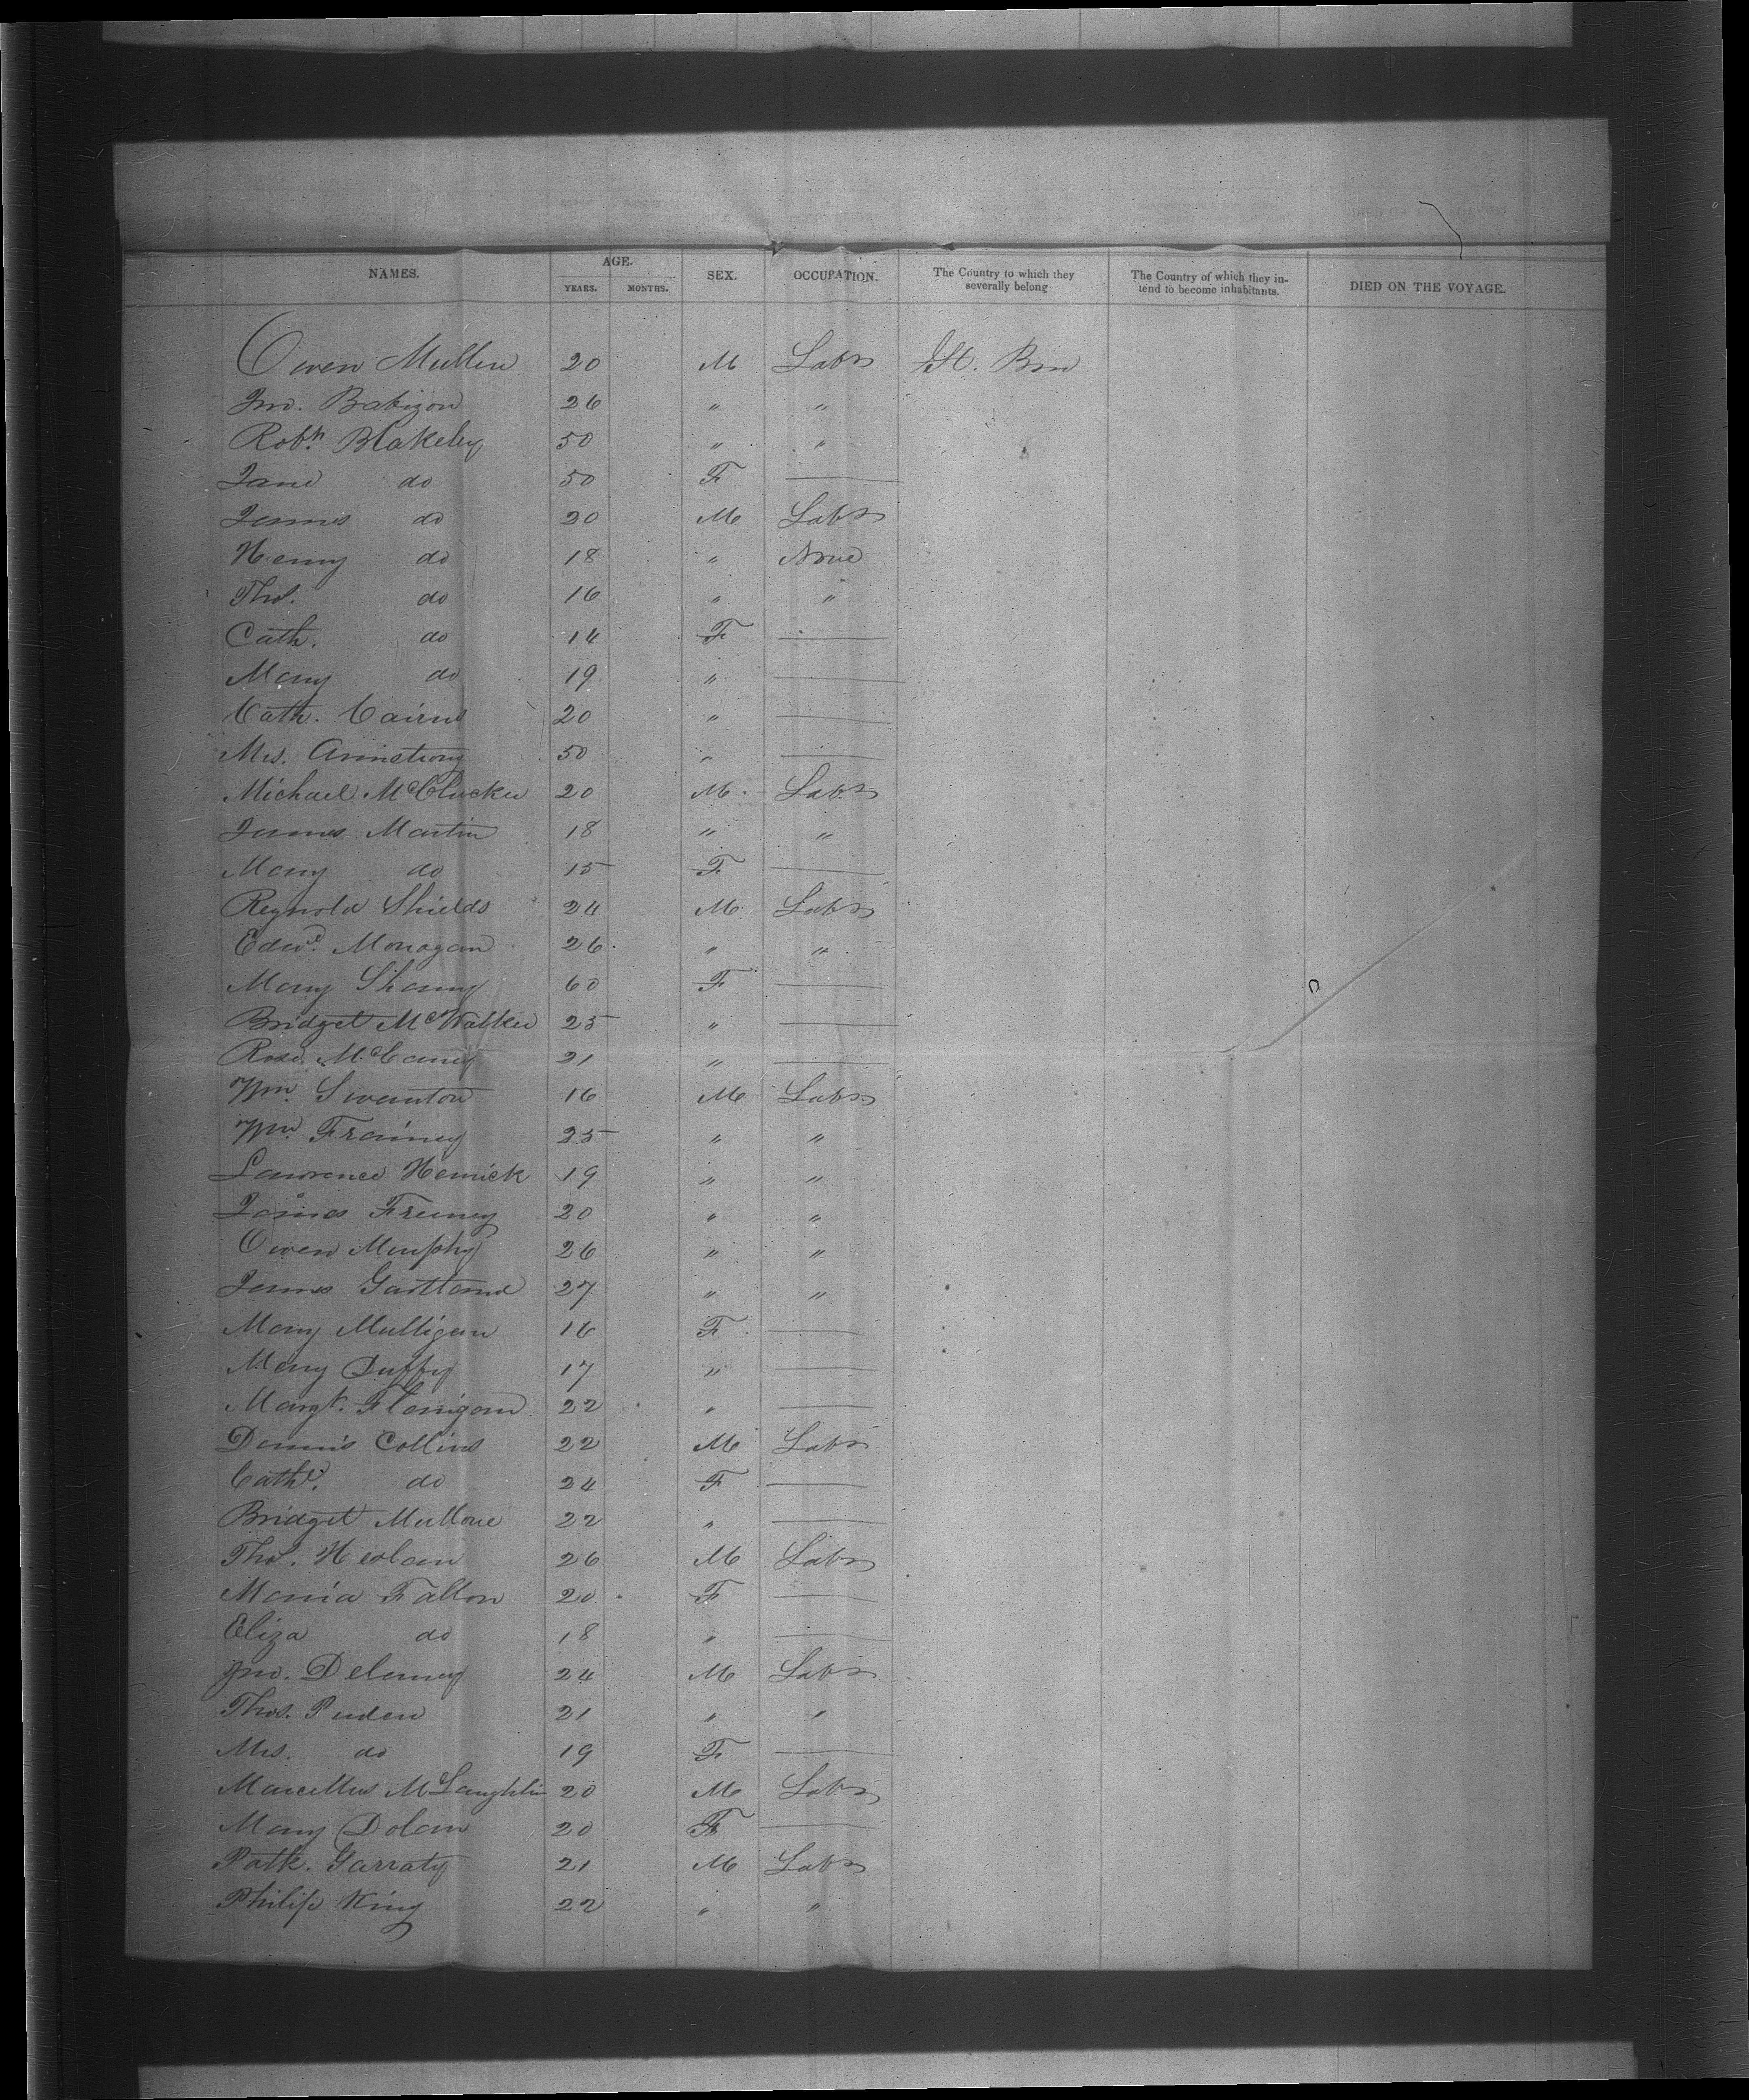 NAMES. AGE. YEARS. MONTHS. SEX. OCCUPATION. The Country to which they severally belong The Country of which they intend to become inhabitants. DIED ON THE VOYAGE.
Owen Mullen 20 M Labr Gt. Brn
Jno. Babizon 26 " "
Robt. Blakeley 50 " "
Jane do 50 F —
James do 20 M Labr
Henry do 18 " None
Thos. do 16 " "
Cath. do 14 F —
Mary do 19 " —
Cath. Cairns 20 " —
Mrs. Armstrong 50 " —
Michael McClucker 20 M. Labr
James Martin 18 " "
Mary do 15 F —
Reynold Shields 24 M Labr
Edwd. Monagan 26 " "
Mary Shanny 60 F —
Bridget McWalker 25 " —
Rose McCaney 21 " —
Wm. Swanton 16 M Labr
Wm. Frainey 25 " "
Lawrence Hemick 19 " "
James Freeney 20 " "
Owen Murphy 26 " "
James Gartland 27 " "
Mary Mulligan 16 F —
Mary Duffy 17 " —
Margt. Flanigan 22 " —
Dennis Collins 22 M Labr
Cathe. do 24 F —
Bridget Mullone 22 " —
Thos. Heslam 26 M Labr
Maria Fallon 20 F —
Eliza do 18 " —
Jno. Delaney 24 M Labr
Thos. Ruden 21 " "
Mrs. do 19 F —
Marcellus McLaughlin 20 M Labr
Mary Dolan 20 F —
Patk. Garraty 21 M Labr
Philip King 22 " "